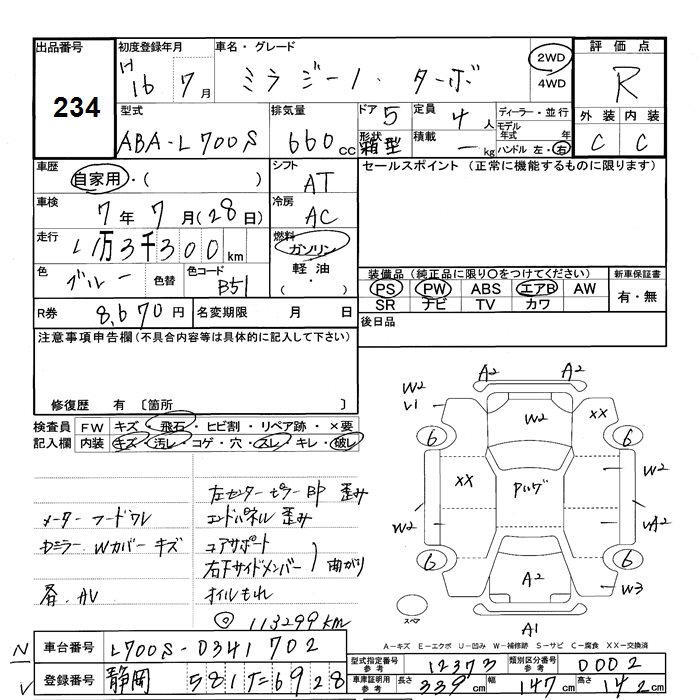 出品番号 初度登録年月 車名・グレード 2WD 評価点
234 H16 7月 ミラジーノ・ターボ 4WD R
型式 排気量 ドア 5 定員 4人 ディーラー・並行 外装 内装
ABA-L700S 660cc 形状 箱型 積載 -kg モデル年式 年 C C
ハンドル 左・右
車歴 シフト セールスポイント (正常に機能するものに限ります)
自家用・( ) AT
車検 7年7月(28日) 冷房 AC
走行 11万3千300km 燃料 ガソリン
色 ブルー 色替 色コード B51 軽油 ( ・ )
装備品(純正品に限り○をつけてください) 新車保証書
PS PW ABS エアB AW 有・無
SR ナビ TV カワ
R券 8,670円 名変期限 月 日 後日品
注意事項申告欄(不具合内容等は具体的に記入して下さい)
修復歴 有 〔箇所 〕
検査員記入欄 FW キズ・飛石・ヒビ割・リペア跡・×要
内装 キズ・汚レ・コゲ・穴・スレ・キレ・破レ
左センターピラー 歪み
メーターフードワレ エンドパネル 歪み
Wカバー キズ コアサポート
右下サイドメンバー 曲がり
AV オイルもれ
◎ 113299km
A2 A2
W2 W2 XX
6 6
XX W2
W2 A2
6 6
A2 W3
スペア A1
A-キズ E-エクボ U-凹み W-補修跡 S-サビ C-腐食 XX-交換済
N 車台番号 L700S-0341702
V 登録番号 静岡 581 6928
型式指定番号 参考 12373 類別区分番号 参考 0002
車庫証明用 参考 長さ 339cm 幅 147cm 高さ 142cm